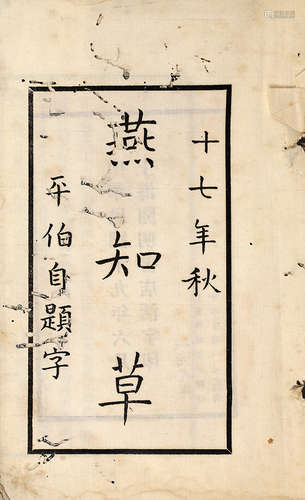 十七年秋
燕知草
平伯自題字